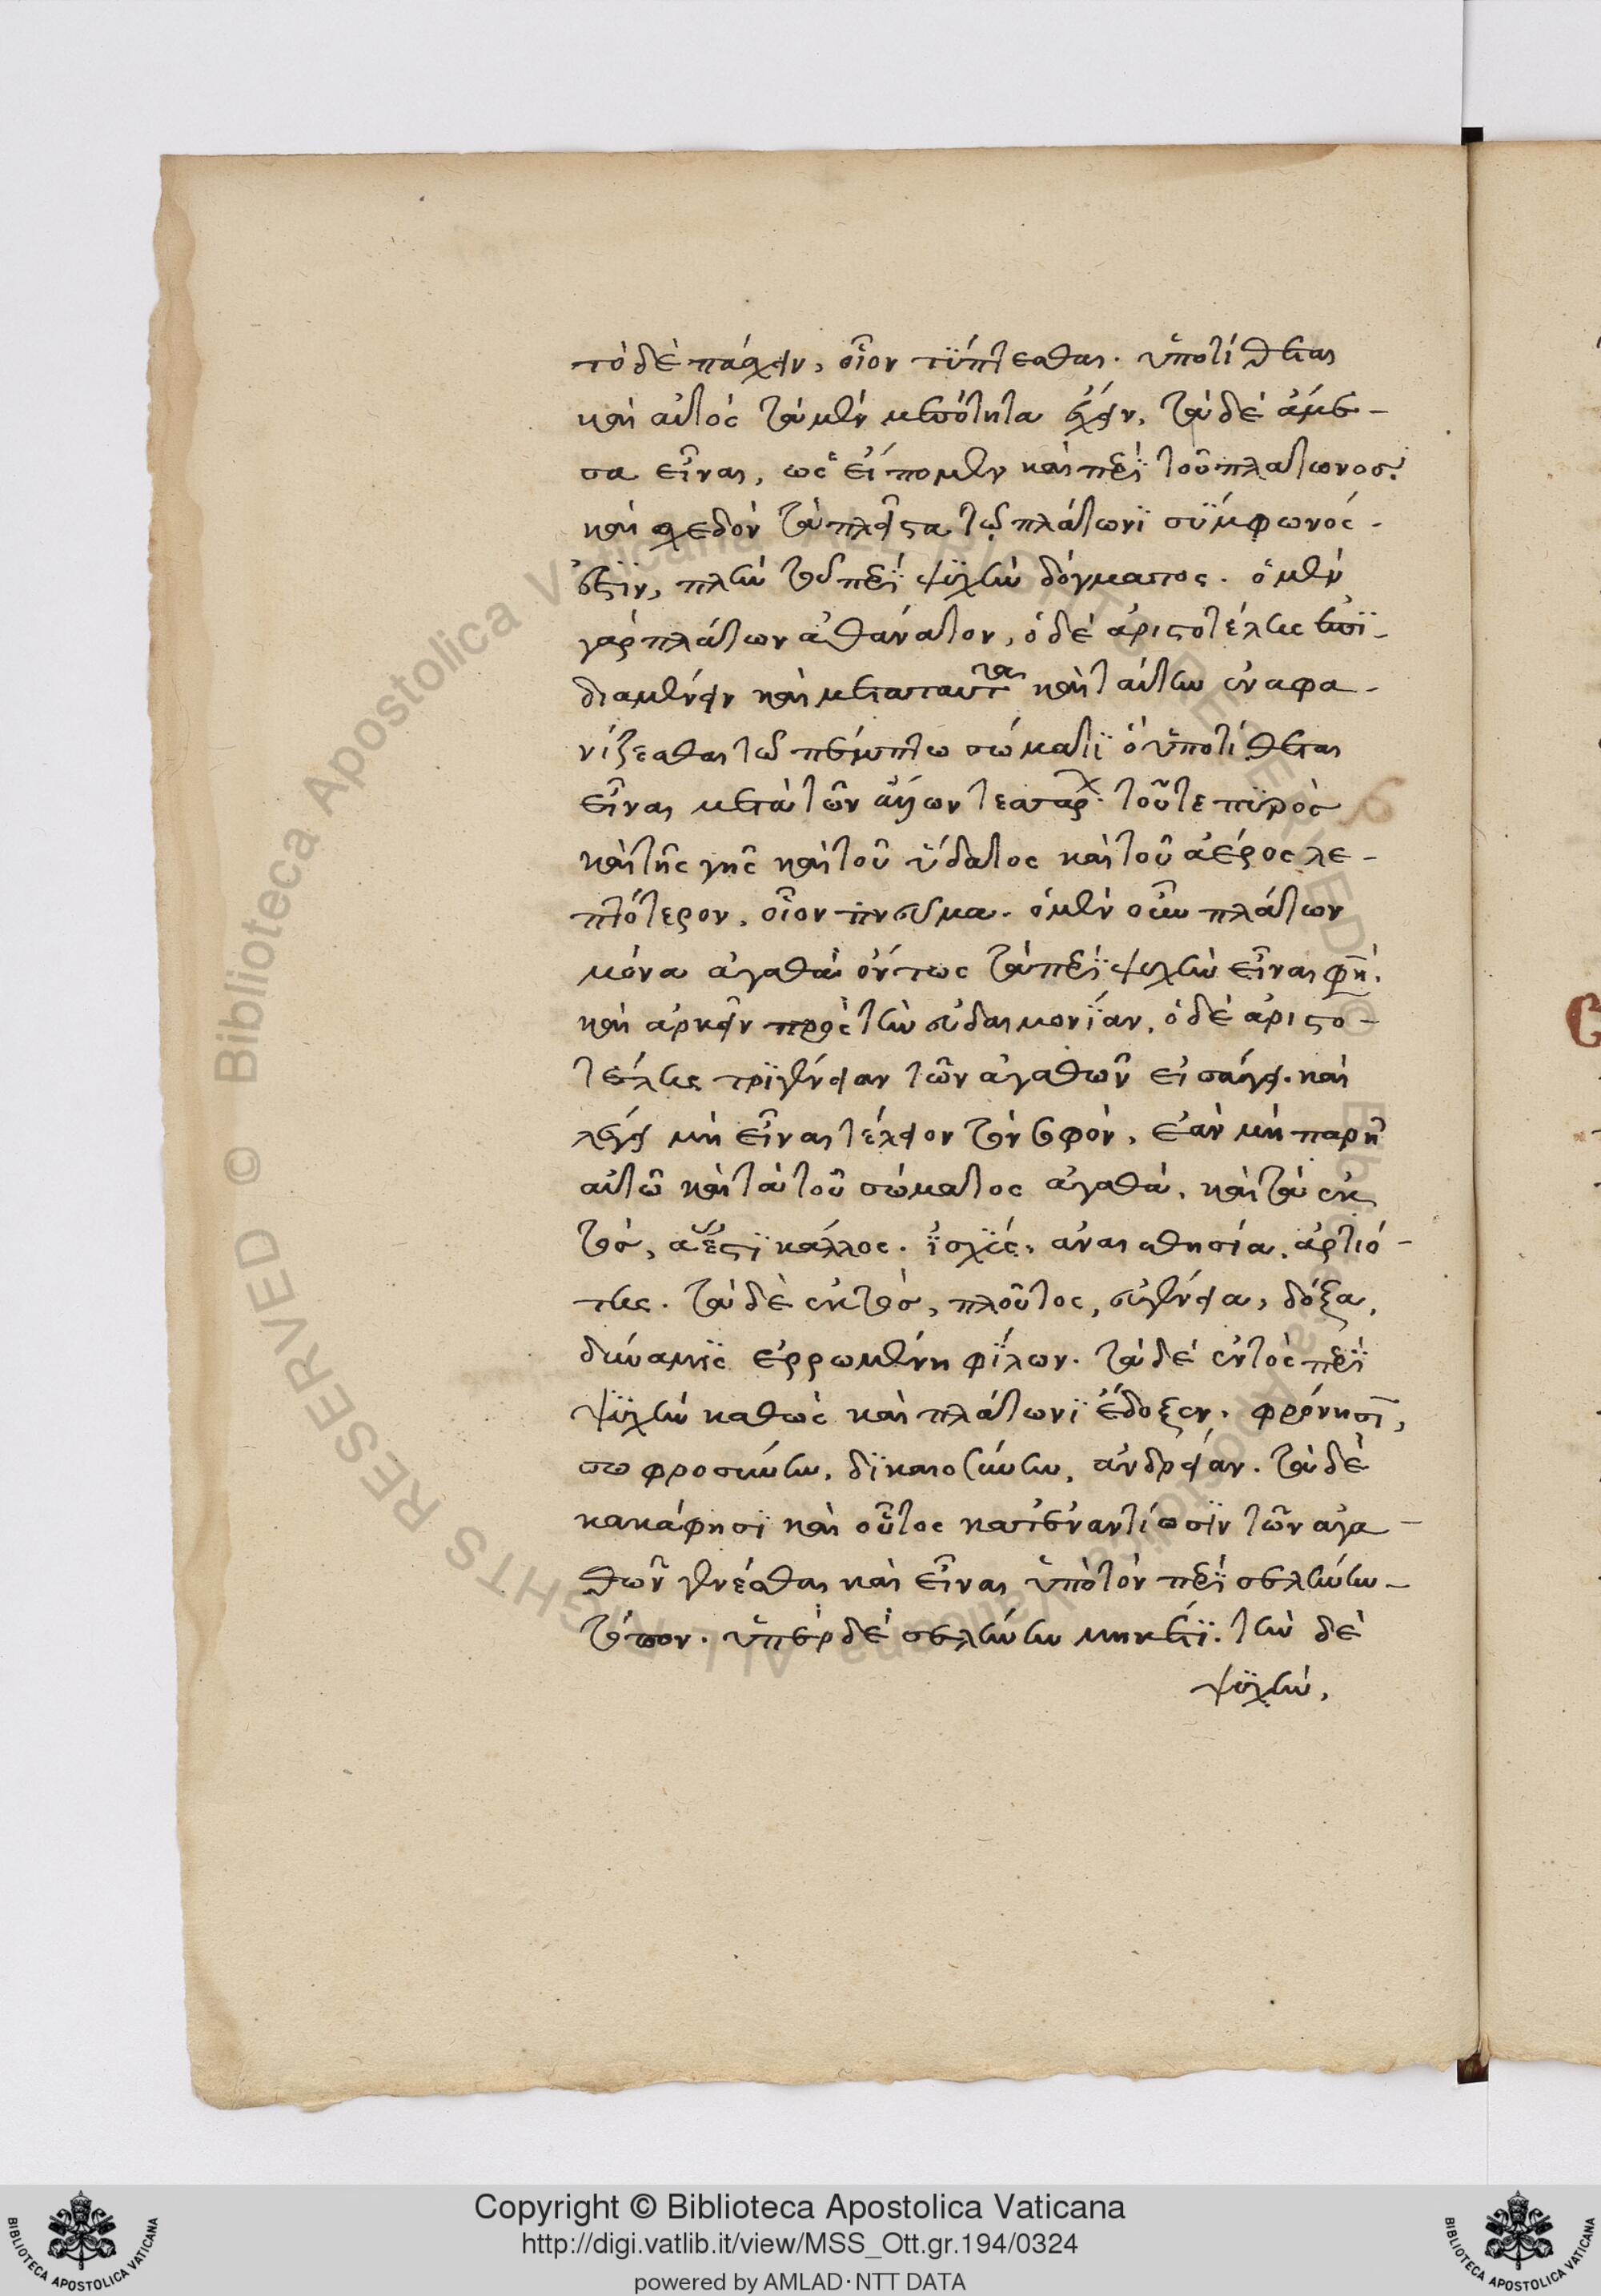 τὸ δὲ πάσχειν, οἷον τϋπτεσθαι. ὑποτίθεται
καὶ αὐτὸς τὰ μὲν μεσότητα ἔχειν, τὰ δὲ ἄμε-
σα εἶναι, ὡς εἴπομεν καὶ περὶ τοῦ πλατωνοσ.
καὶ σχεδὸν τὰ πλεῖστα τῷ πλάτωνϊ σϋμφωνός
ἐστϊν, πλὴν τοῦ περὶ ψϋχὴν δόγματος. ὁ μὲν
γὰρ πλάτων ἀθάνατον, ὁ δὲ ἀριστοτέλης ἐπϊ-
διαμένειν καὶ μετα ταυτα καὶ ταύτην ἐναφα-
νίζεσθαι τῶ πέμπτω σώματϊ ὁ ὑποτίθεται
εἶναι μετὰ τῶν ἄλλων τεσσαρ. τοῦτε πϋρὸς
καὶ τῆς γῆς καὶ τοῦ ὕδατος καὶ τοῦ ἀέρος λε-
πτότερον, οἷον πνεῦμα. ὁ μὲν οὖν πλάτων
μόνα ἀγαθὰ ὄντως τὰ περὶ ψυχὴν εἶναι φη.
καὶ ἀρκεῖν πρὸς τὴν εὐδαιμονΐαν, ὁ δὲ ἀριστο-
τέλης τρϊγένειαν τῶν ἀγαθῶν εἰσάγει. καὶ
λέγει μὴ εἶναι τέλειον τὸν σοφὸν, ἐὰν μὴ παρῆ
αὐτῶ καὶ τὰ τοῦ σώματος ἀγαθὰ, καὶ τὰ ἐκ
τὸς, ἅ ἐστϊ κάλλος. ἰσχϋς, αναισθησία, ἀρτιό-
της. τὰ δὲ ἐκτὸς, πλοῦτος, εὐγένεια, δόξα,
δύναμϊς ἐρρωμένη φϊλων. τὰ δὲ ἐντὸς περὶ
ψϋχὴν καθὼς καὶ πλάτωνϊ ἔδοξεν. φρόνησϊ,
σωφροσύνην, δϊκαιοσύνην, ἀνδρείαν. τὰ δὲ
κακάφησϊ καὶ οὗτος κατ' ἐναντίωσϊν τῶν ἀγα-
θῶν γενέσθαι καὶ εἶναι ὑπὸ τὸν περὶ σελήνην-
τόπον. ὑπὲρ δὲ σελήνην μηκέτϊ. τὴν δὲ
ψϋχὴν,
Copyright © Biblioteca Apostolica Vaticana
http://digi.vatlib.it/view/MSS_Ott.gr.194/0324
powered by AMLAD·NTT DATA